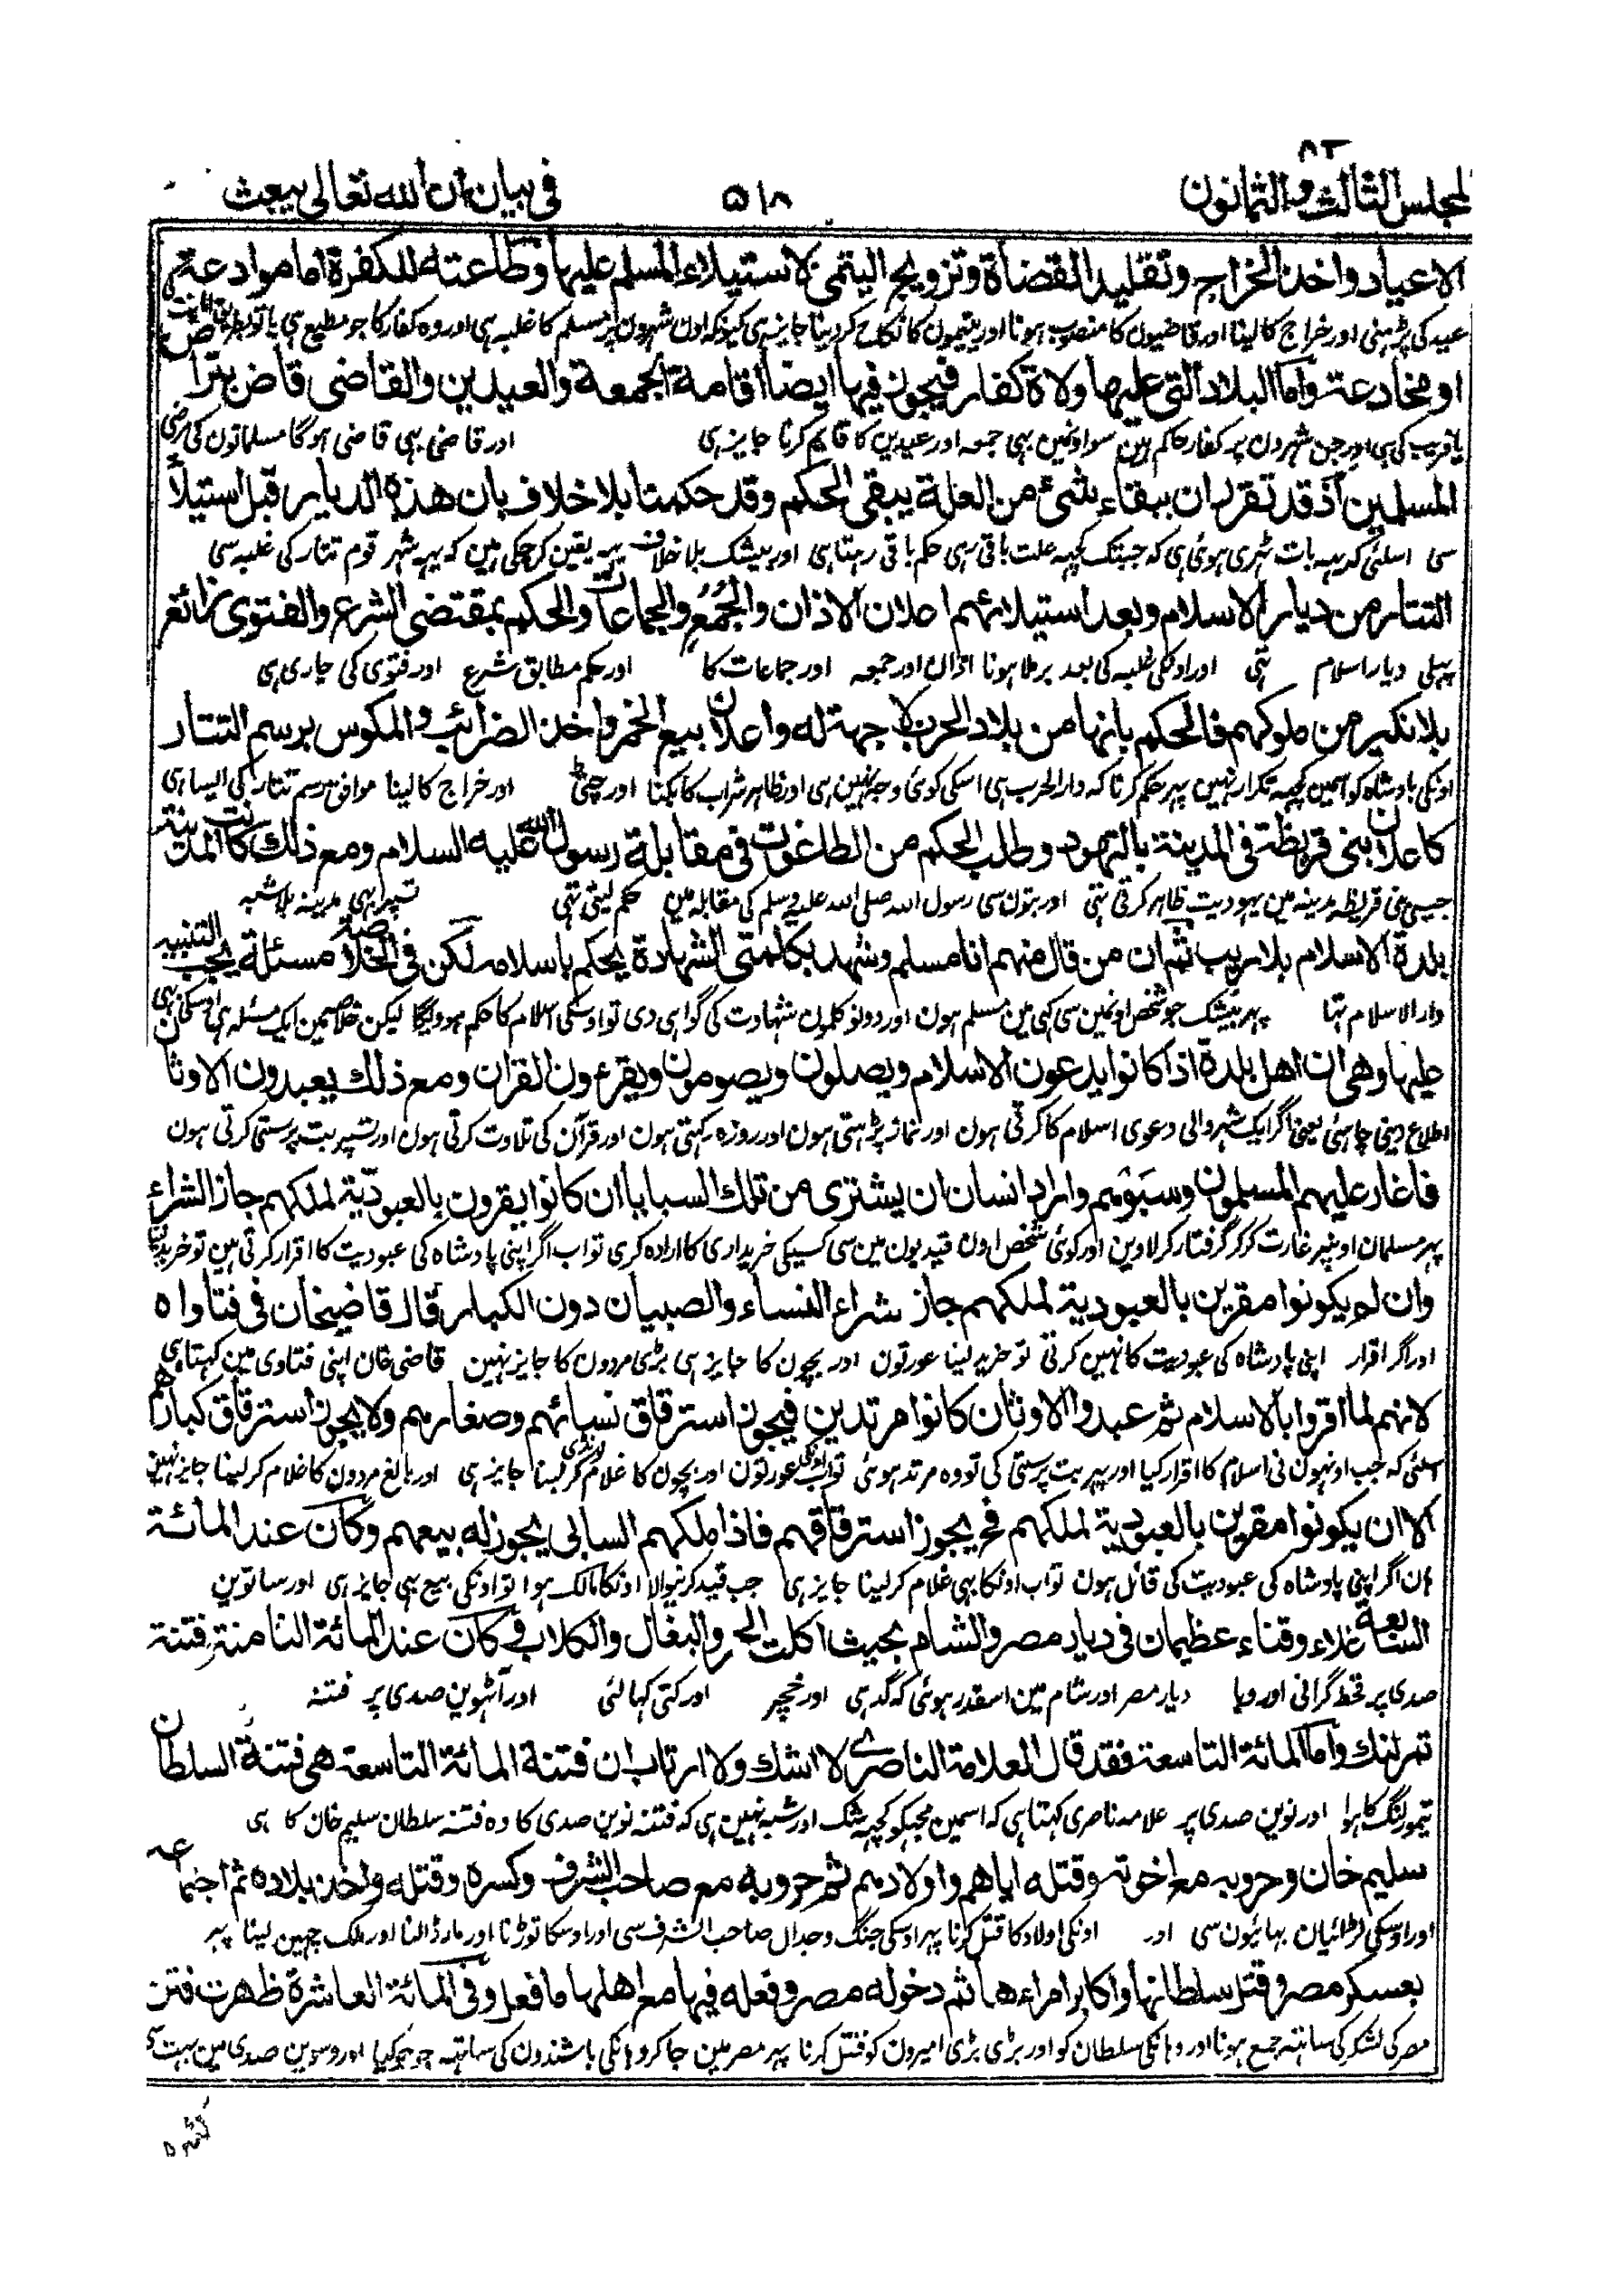 ۸۳
المجلس الثالث والثمانون
۵۱۸
فی بیان ان الله تعالی یبعث
الاعیاد واخذ الخراج وتقلید القضاة وتزویج الیتمی لاستیلاء المسلم علیها وطاعته للکفرة اما موادعة
عید کی پڑہنی اور خراج کا لینا اور قاضیون کا منصوب ہونا اور یتیمون کا نکاح کر دینا جایز ہی کیونکہ اون شہرون پر مسلم کا غلبہ ہی اور وہ کفار کا جو مطیع ہی یا تو بطریق
او مخادعة واما البلاد التی علیها ولاة کفار فیجوز فیها ایضا اقامة الجمعة والعیدین والقاضی قاض بتراض
یا فریب کی ہی اور جن شہرون پر کفار حاکم ہین سو اونمین بہی جمعہ اور عیدین کا قایم کرنا جایز ہی اور قاضی بہی قاضی ہوگا مسلمانون کی مرضی
المسلمین اذ قد تقرر ان ببقاء شئ من العلة یبقی الحکم وقد حکمنا بلا خلاف بان هذه الدیار قبل استیلاء
سی اسلئی کہ یہہ بات ٹہری ہوئی ہی کہ جبتک کچہہ علت باقی رہی حکم باقی رہتا ہی اور بیشک بلا خلاف یہہ یقین کر چکی ہین کہ یہہ شہر قوم تتار کی غلبہ سی
التتار من دیار الاسلام وبعد استیلائهم اعلان الاذان والجمع والجماعات والحکم بمقتضی الشرع والفتوی ذائع
پہلی دیار اسلام تہی اور اونکی غلبہ کی بعد برملا ہونا اذان اور جمعہ اور جماعات کا اور حکم مطابق شرع اور فتوی کی جاری ہی
بلا نکیر من ملوکهم فالحکم بانها من بلاد الحرب لا جهة له واعلان بیع الخمر واخذ الضرائب والمکوس برسم التتار
اونکی بادشاہ کو اسمین کچہہ تکرار نہین پہر حکم کرنا کہ دار الحرب ہی اسکی کوئی وجہ نہین ہی اور ظاہر شراب کا بکنا اور چٹی اور خراج کا لینا موافق رسم تتار کی ایسا ہی
کاعلان بنی قریظة فی المدینة بالتهود وطلب الحکم من الطاغوت فی مقابلة رسول الله علیه السلام ومع ذلک کانت المدینة
جیسی بنی قریظہ مدینہ مین یہودیت ظاہر کرتی تہی اور بتون سی رسول اللہ صلی اللہ علیہ وسلم کی مقابلہ مین حکم لیتی تہی تسپر بہی مدینہ بلا شبہ
بلدة الاسلام بلا ریب ثم ان من قال منهم انا مسلم وشهد بکلمتی الشهادة یحکم باسلامه لکن فی الخلاصة مسئلة یجب التنبیه
دار الاسلام تہا پہر بیشک جو شخص اونمین سی کہی مین مسلم ہون اور دونو کلمون شہادت کی گواہی دی تو اوسکی اسلام کا حکم ہوویگا لیکن خلاصہ مین ایک مسئلہ ہی اوسکی بہی
علیها وهی ان اهل بلدة اذا کانوا یدعون الاسلام ویصلون ویصومون ویقرءون القران ومع ذلک یعبدون الاوثان
اطلاع دینی چاہئی یعنی اگر ایک شہر والی دعوی اسلام کا کرتی ہون اور نماز پڑہتی ہون اور روزہ رکہتی ہون اور قرآن کی تلاوت کرتی ہون اور تسپر بت پرستی کرتی ہون
فاغار علیهم المسلمون وسبوهم واراد انسان ان یشتری من تلک السبایا ان کانوا یقرون بالعبودیة لملکهم جاز الشراء
پہر مسلمان اونپر غارت کر کر گرفتار کر لاوین اور کوئی شخص اون قیدیون مین سی کسیکی خریداری کا ارادہ کری تو اب اگر اپنی پادشاہ کی عبودیت کا اقرار کرتی ہین تو خرید لینا
وان لم یکونوا مقرین بالعبودیة لملکهم جاز شراء النساء والصبیان دون الکبار قال قاضیخان فی فتاواه
اور اگر اقرار اپنی پادشاہ کی عبودیت کا نہین کرتی تو خرید لینا عورتون اور بچون کا جایز ہی بڑی مردون کا جایز نہین قاضی خان اپنی فتاوی مین کہتا ہی
لانهم لما اقروا بالاسلام ثم عبدوا الاوثان کانوا مرتدین فیجوز استرقاق نسائهم وصغارهم ولا یجوز استرقاق کبارهم
اسلئی کہ جب اونہون نی اسلام کا اقرار کیا اور پہر بت پرستی کی تو وہ مرتد ہوئی تو اب اونکی عورتون اور بچون کا غلام لونڈی کر لینا جایز ہی اور بالغ مردون کا غلام کر لینا جایز نہین
الا ان یکونوا مقرین بالعبودیة لملکهم فح یجوز استرقاقهم فاذا ملکهم السابی یجوز له بیعهم وکان عند المائة
ہان اگر اپنی پادشاہ کی عبودیت کی قائل ہون تو اب اونکا بہی غلام کر لینا جایز ہی جب قید کرنیوالا اونکا مالک ہوا تو اونکی بیع بہی جایز ہی اور ساتوین
السابعة غلاء وفناء عظیمان فی دیار مصر والشام بحیث اکلت الحمر والبغال والکلاب وکان عند المائة الثامنة فتنة
صدی پر قحط گرانی اور وبا دیار مصر اور شام مین اسقدر ہوئی کہ گدہی اور خچر اور کتی کہا لئی اور آٹہوین صدی پر فتنہ
تمرلنک واما المائة التاسعة فقد قال العلامة الناصری لا اشک ولا ارتاب ان فتنة المائة التاسعة هی فتنة السلطان
تیمور لنگ کا ہوا اور نوین صدی پر علامہ ناصری کہتا ہی کہ اسمین مجہکو کچہہ شک اور شبہ نہین ہی کہ فتنہ نوین صدی کا وہ فتنہ سلطان سلیم خان کا ہی
سلیم خان وحروبه مع اخوته وقتله ایاهم واولادهم ثم حروبه مع صاحب الشرف وکسره وقتله واخذ بلاده ثم اجتماعه
اور اوسکی لڑائیان بہائیون سی اور اونکی اولاد کا قتل کرنا پہر اوسکی جنگ و جدال صاحب الشرف سی اور اوسکا توڑنا اور مار ڈالنا اور ملک چہین لینا پہر
بعسکر مصر وقتل سلطانها واکابر امراءها ثم دخوله مصر وفعله فیها مع اهلها ما فعل وفی المائة العاشرة ظهرت فتن
مصر کی لشکر کی ساتہہ جمع ہونا اور وہانکی سلطان کو اور بڑی بڑی امیرون کو قتل کرنا پہر مصر مین جا کر وہانکی باشندون کی ساتہہ جو جو کیا اور دسوین صدی مین بہت
کثیرة